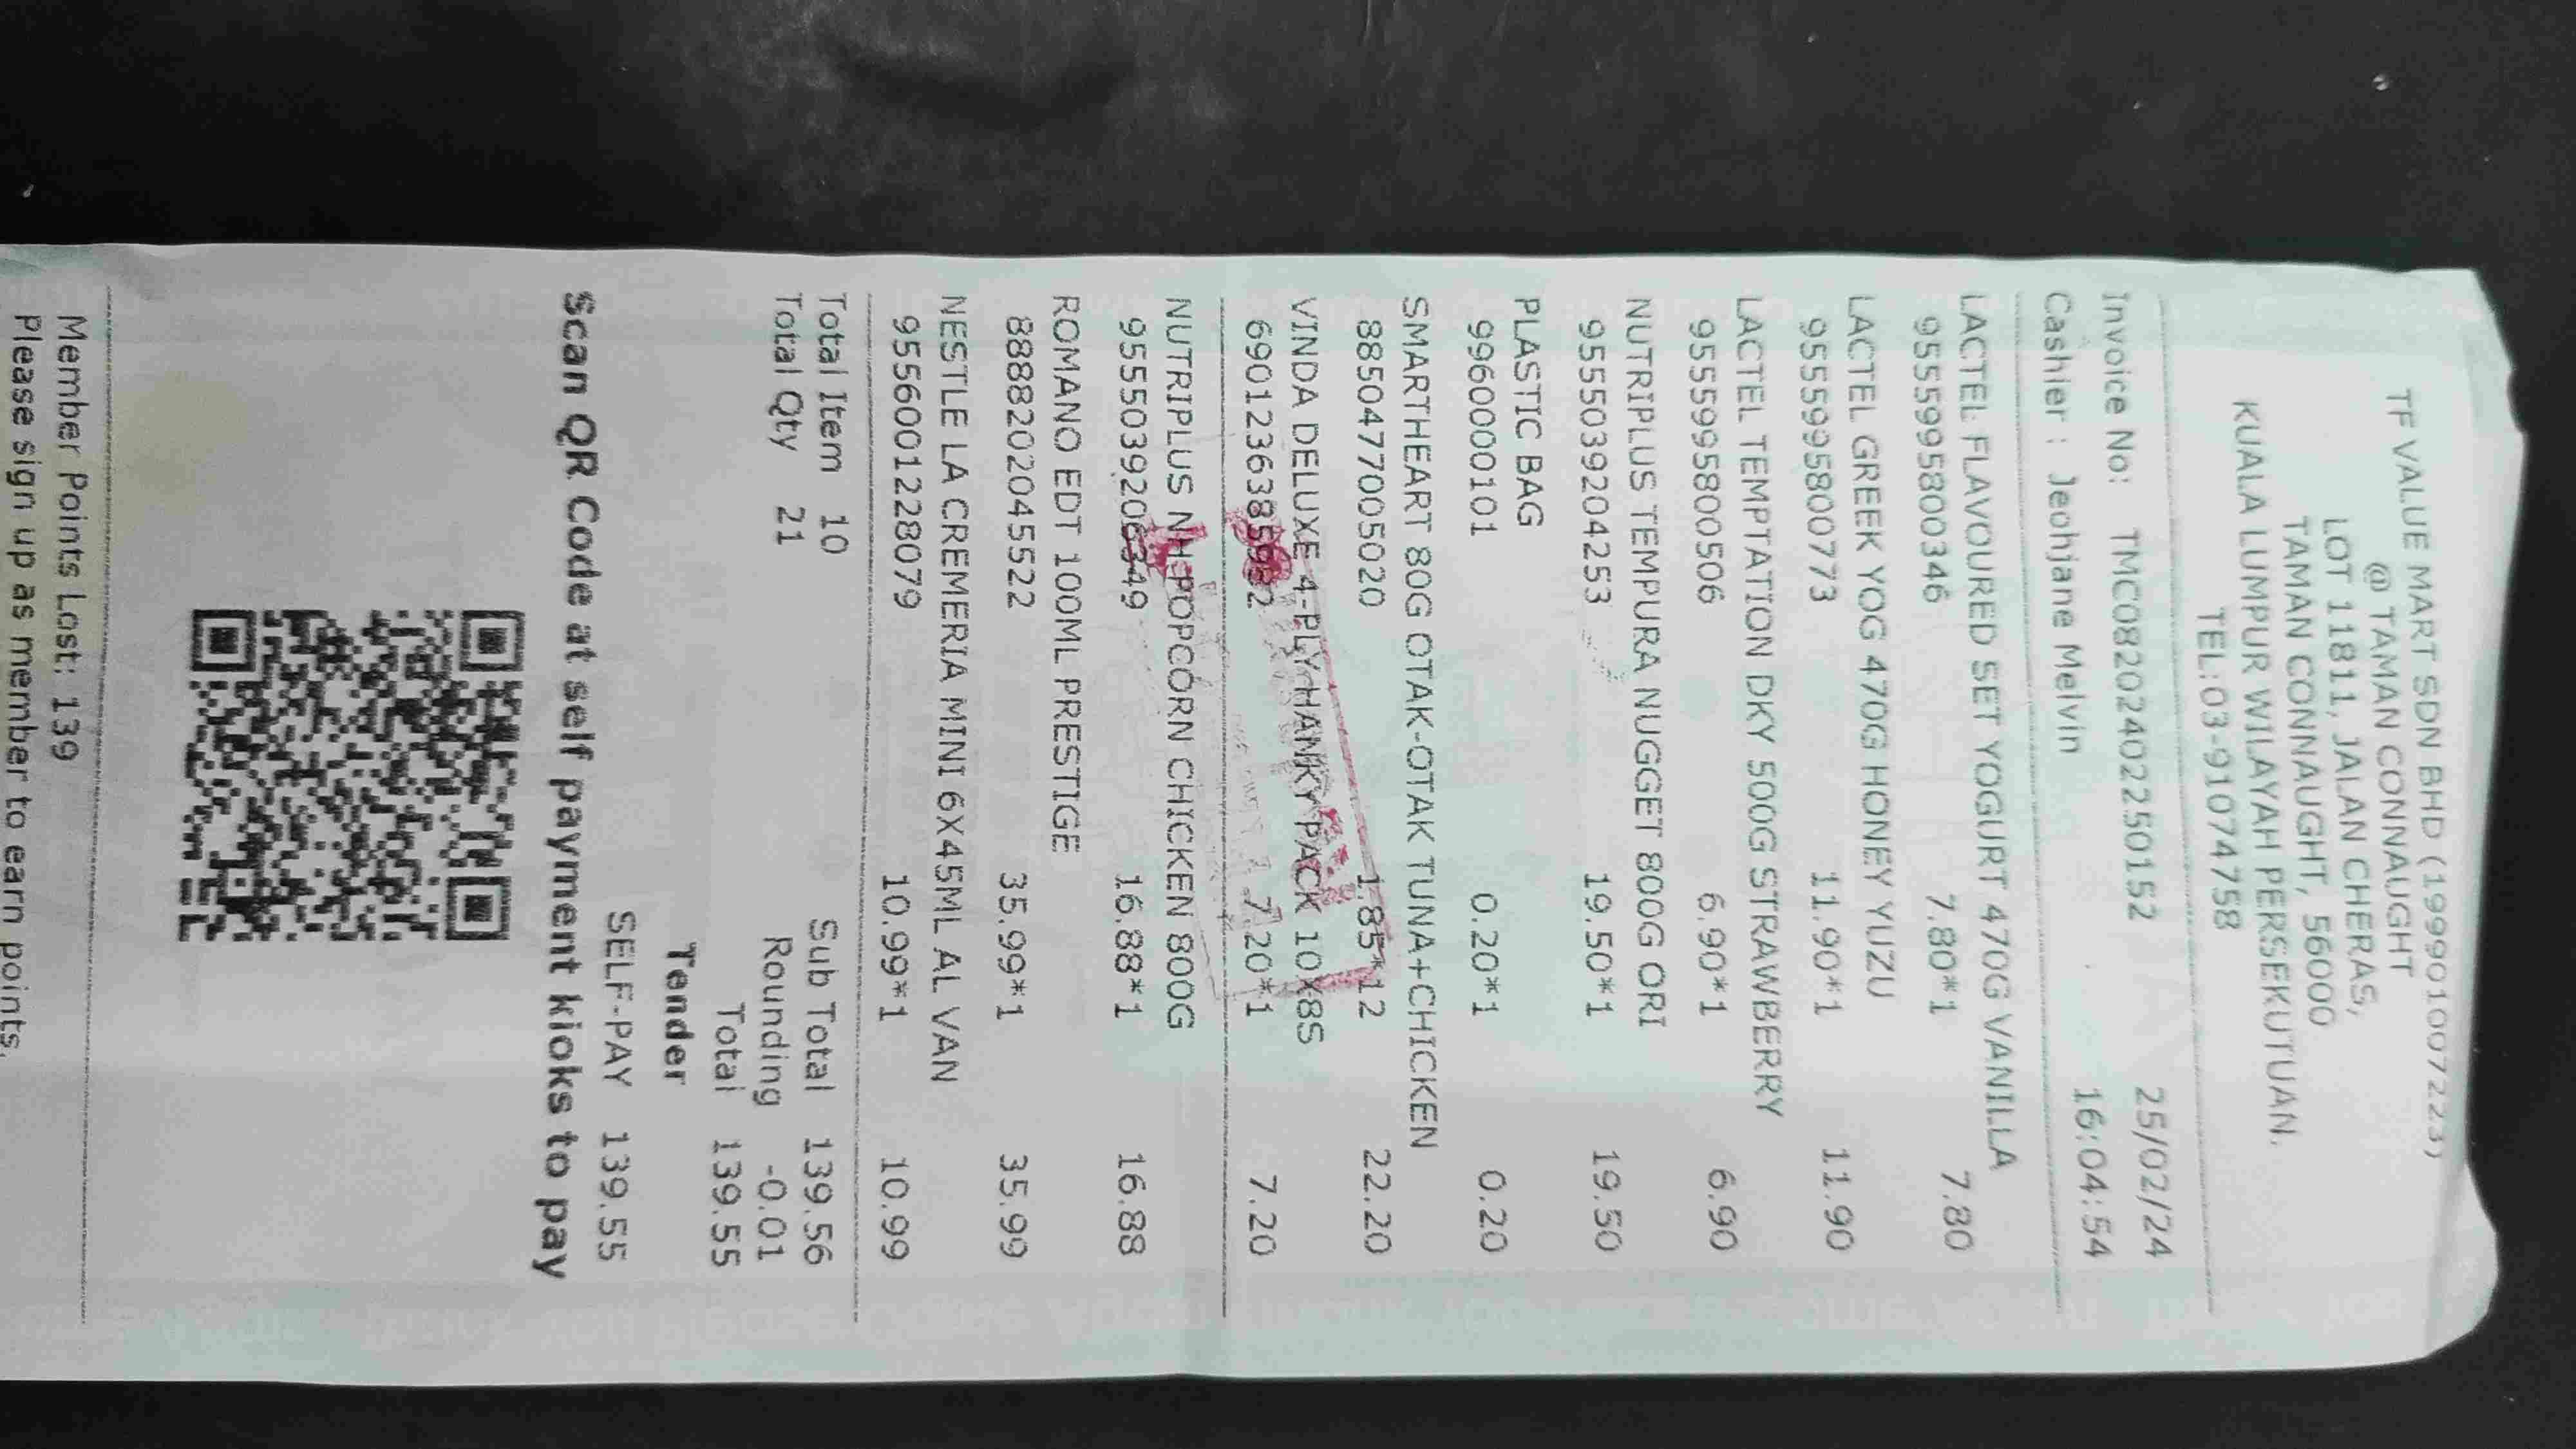 TF VALUE MART SDN BHD (199901007223)
@ TAMAN CONNAUGHT
LOT 11811, JALAN CHERAS,
TAMAN CONNAUGHT, 56000
KUALA LUMPUR WILAYAH PERSEKUTUAN.
TEL:03-91074758
Invoice No: TMC08202402250152 25/02/24
Cashier : Jeohjane Melvin 16:04:54
LACTEL FLAVOURED SET YOGURT 470G VANILLA
9555995800346 7.80*1 7.80
LACTEL GREEK YOG 470G HONEY YUZU
9555995800773 11.90*1 11.90
LACTEL TEMPTATION DKY 500G STRAWBERRY
9555995800506 6.90*1 6.90
NUTRIPLUS TEMPURA NUGGET 800G ORI
9555039204253 19.50*1 19.50
PLASTIC BAG
9960000101 0.20*1 0.20
SMARTHEART 80G OTAK-OTAK TUNA+CHICKEN
8850477005020 1.85*12 22.20
VINDA DELUXE 4-PLY HANKY PACK 10X8S
7.20*1 7.20
NUTRIPLUS NH POPCORN CHICKEN 800G
9555039206349 16.88*1 16.88
ROMANO EDT 100ML PRESTIGE
8888202045522 35.99*1 35.99
NESTLE LA CREMERIA MINI 6X45ML AL VAN
9556001228079 10.99*1 10.99
Total Item 10 Sub Total 139.56
Total Qty 21 Rounding -0.01
Total 139.55
Tender
SELF-PAY 139.55
Scan QR Code at self payment kioks to pay
Member Points Lost: 139
Please sign up as member to earn points.